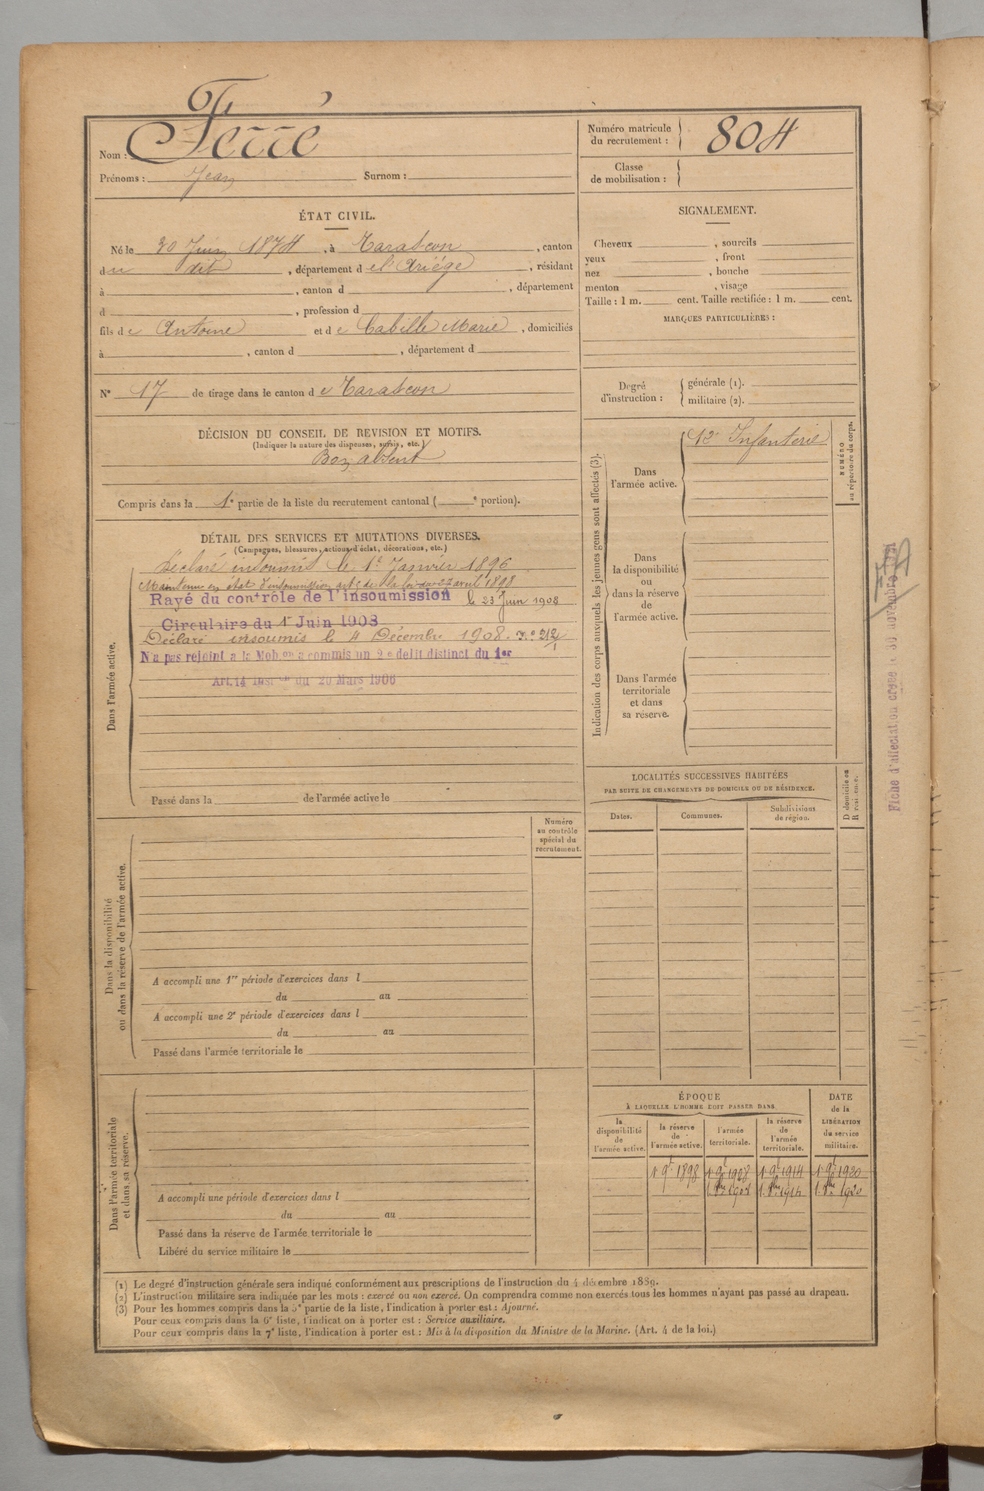 Nom : Ferré
Prénoms : Jean Surnom :
Numéro matricule du recrutement : 804
Classe de mobilisation :
ÉTAT CIVIL.
Né le 30 Juin 1874, à Tarascon, canton
du dit, département de l'Ariège, résidant
à , canton d , département
d , profession d
fils de Antoine et de Cabille Marie, domiciliés
à , canton d , département d
N° 17 de tirage dans le canton de Tarascon
DÉCISION DU CONSEIL DE REVISION ET MOTIFS.
(Indiquer la nature des dispenses, sursis, etc.)
Bon absent
Compris dans la 1e partie de la liste du recrutement cantonal ( e portion).
DÉTAIL DES SERVICES ET MUTATIONS DIVERSES.
(Campagnes, blessures, actions d'éclat, décorations, etc.)
Dans l'armée active.
Déclaré insoumis le 1er Janvier 1896
Maintenu en état d'insoumission de la loi du avril 1898
Rayé du contrôle de l'insoumission le 23 Juin 1908
Circulaire du 1er Juin 1908
Déclaré insoumis le 4 Décembre 1908. N° 212
N'a pas rejoint a la Mob.on a commis un 2e delit distinct du 1er
Art. 14 Inst.on du 20 Mars 1906
Passé dans la de l'armée active le
Dans la disponibilité
ou dans la réserve de l'armée active.
Numéro
au contrôle
spécial du
recrutement.
A accompli une 1re période d'exercices dans l
du au
A accompli une 2e période d'exercices dans l
du au
Passé dans l'armée territoriale le
Dans l'armée territoriale
et dans sa réserve.
A accompli une période d'exercices dans l
du au
Passé dans la réserve de l'armée territoriale le
Libéré du service militaire le
SIGNALEMENT.
Cheveux , sourcils
yeux , front
nez , bouche
menton , visage
Taille : 1 m. cent. Taille rectifiée : 1 m. cent.
MARQUES PARTICULIÈRES :
Degré d'instruction :
générale (1).
militaire (2).
Indication des corps auxquels les jeunes gens sont affectés (3).
Dans
l'armée active.
12e Infanterie
NUMÉRO
au répertoire du corps.
Dans
la disponibilité
ou
dans la réserve
de
l'armée active.
Dans l'armée
territoriale
et dans
sa réserve.
LOCALITÉS SUCCESSIVES HABITÉES
PAR SUITE DE CHANGEMENTS DE DOMICILE OU DE RÉSIDENCE.
Dates.
Communes.
Subdivisions
de région.
D domicile ou
R résidence.
ÉPOQUE
À LAQUELLE L'HOMME DOIT PASSER DANS
DATE
de la
LIBÉRATION
du service
militaire.
la
disponibilité
de
l'armée active.
la réserve
de
l'armée active.
l'armée
territoriale.
la réserve
de
l'armée
territoriale.
1898 1908 1914 1920
1914 1920
Fiche d'affectation créée le 30 novembre
(1) Le degré d'instruction générale sera indiqué conformément aux prescriptions de l'instruction du 4 décembre 1889.
(2) L'instruction militaire sera indiquée par les mots : exercé ou non exercé. On comprendra comme non exercés tous les hommes n'ayant pas passé au drapeau.
(3) Pour les hommes compris dans la 5e partie de la liste, l'indication à porter est : Ajourné.
Pour ceux compris dans la 6e liste, l'indication à porter est : Service auxiliaire.
Pour ceux compris dans la 7e liste, l'indication à porter est : Mis à la disposition du Ministre de la Marine. (Art. 4 de la loi.)